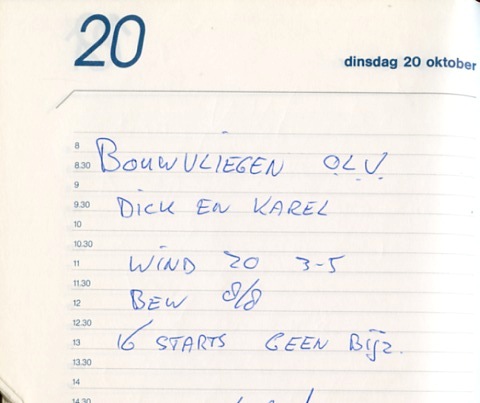 20
dinsdag 20 oktober
8
8.30 BOUWVLIEGEN O.L.V.
9
9.30 DICK EN KAREL
10
10.30
11 WIND 20 3-5
11.30
12 BEW 8/8
12.30
13 16 STARTS GEEN BIJZ.
13.30
14
14.30